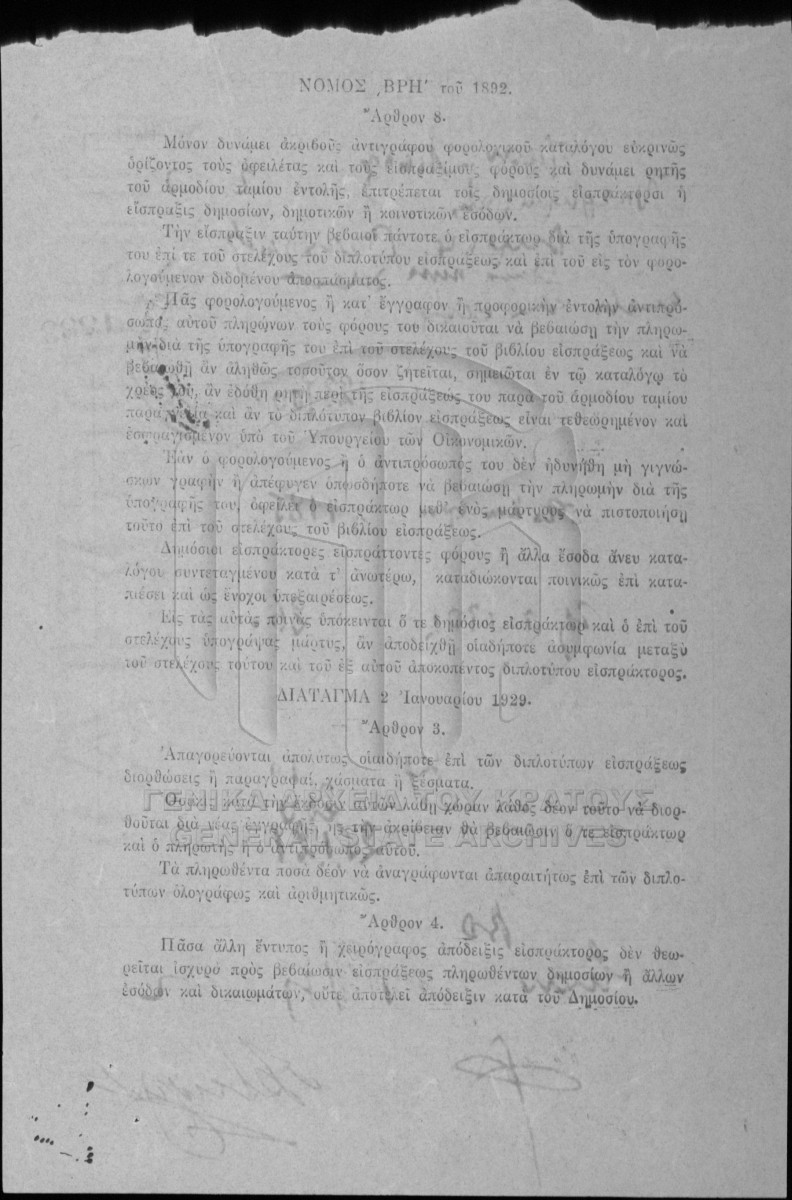 ΝΟΜΟΣ ͵ΒΡΗ′ τοῦ 1892.
Ἄρθρον 8.
Μόνον δυνάμει ἀκριβοῦς ἀντιγράφου φορολογικοῦ καταλόγου εὐκρινῶς
ὁρίζοντος τοὺς ὀφειλέτας καὶ τοὺς εἰσπραξίμους φόρους καὶ δυνάμει ρητῆς
τοῦ ἁρμοδίου ταμίου ἐντολῆς, ἐπιτρέπεται τοῖς δημοσίοις εἰσπράκτορσι ἡ
εἴσπραξις δημοσίων, δημοτικῶν ἢ κοινοτικῶν ἐσόδων.
Τὴν εἴσπραξιν ταύτην βεβαιοῖ πάντοτε ὁ εἰσπράκτωρ διὰ τῆς ὑπογραφῆς
του ἐπί τε τοῦ στελέχους τοῦ διπλοτύπου εἰσπράξεως καὶ ἐπὶ τοῦ εἰς τὸν φορο-
λογούμενον διδομένου ἀποσπάσματος.
Πᾶς φορολογούμενος ἢ κατ᾽ ἔγγραφον ἢ προφορικὴν ἐντολὴν ἀντιπρό-
σωπος αὐτοῦ πληρώνων τοὺς φόρους του δικαιοῦται νὰ βεβαιώσῃ τὴν πληρω-
μὴν διὰ τῆς ὑπογραφῆς του ἐπὶ τοῦ στελέχους τοῦ βιβλίου εἰσπράξεως καὶ νὰ
βεβαιωθῇ ἂν ἀληθῶς τοσοῦτον ὅσον ζητεῖται, σημειῶται ἐν τῷ καταλόγῳ τὸ
χρέος του, ἂν ἐδόθη ρητὴ περὶ τῆς εἰσπράξεώς του παρὰ τοῦ ἁρμοδίου ταμίου
παραγγελία καὶ ἂν τὸ διπλότυπον βιβλίον εἰσπράξεως εἶναι τεθεωρημένον καὶ
ἐσφραγισμένον ὑπὸ τοῦ Ὑπουργείου τῶν Οἰκονομικῶν.
Ἐὰν ὁ φορολογούμενος ἢ ὁ ἀντιπρόσωπός του δὲν ἠδυνήθη μὴ γιγνώ-
σκων γραφὴν ἢ ἀπέφυγεν ὁπωσδήποτε νὰ βεβαιώσῃ τὴν πληρωμὴν διὰ τῆς
ὑπογραφῆς του, ὀφείλει ὁ εἰσπράκτωρ μεθ᾽ ἑνὸς μάρτυρος νὰ πιστοποιήσῃ
τοῦτο ἐπὶ τοῦ στελέχους τοῦ βιβλίου εἰσπράξεως.
Δημόσιοι εἰσπράκτορες εἰσπράττοντες φόρους ἢ ἄλλα ἔσοδα ἄνευ κατα-
λόγου συντεταγμένου κατὰ τ᾽ ἀνωτέρω, καταδιώκονται ποινικῶς ἐπὶ κατα-
πιέσει καὶ ὡς ἔνοχοι ὑπεξαιρέσεως.
Εἰς τὰς αὐτὰς ποινὰς ὑπόκεινται ὅ τε δημόσιος εἰσπράκτωρ καὶ ὁ ἐπὶ τοῦ
στελέχους ὑπογράψας μάρτυς, ἂν ἀποδειχθῇ οἱαδήποτε ἀσυμφωνία μεταξὺ
τοῦ στελέχους τούτου καὶ τοῦ ἐξ αὐτοῦ ἀποκοπέντος διπλοτύπου εἰσπράκτορος.
ΔΙΑΤΑΓΜΑ 2 Ἰανουαρίου 1929.
Ἄρθρον 3.
Ἀπαγορεύονται ἀπολύτως οἱαιδήποτε ἐπὶ τῶν διπλοτύπων εἰσπράξεως
διορθώσεις ἢ παραγραφαί, χάσματα ἢ ξέσματα.
ΓΕΝΙΚΑ ΑΡΧΕΙΑ ΤΟΥ ΚΡΑΤΟΥΣ
Ὁσάκις κατὰ τὴν ἔκδοσιν αὐτῶν λάβῃ χώραν λάθος δέον τοῦτο νὰ διορ-
θοῦται διὰ νέας ἐγγραφῆς, ἧς τὴν ἀκρίβειαν θὰ βεβαιῶσιν ὅ τε εἰσπράκτωρ
GENERAL STATE ARCHIVES
καὶ ὁ πληρωτὴς ἢ ὁ ἀντιπρόσωπος αὐτοῦ.
Τὰ πληρωθέντα ποσὰ δέον νὰ ἀναγράφωνται ἀπαραιτήτως ἐπὶ τῶν διπλο-
τύπων ὁλογράφως καὶ ἀριθμητικῶς.
Ἄρθρον 4.
Πᾶσα ἄλλη ἔντυπος ἢ χειρόγραφος ἀπόδειξις εἰσπράκτορος δὲν θεω-
ρεῖται ἰσχυρὰ πρὸς βεβαίωσιν εἰσπράξεως πληρωθέντων δημοσίων ἢ ἄλλων
ἐσόδων καὶ δικαιωμάτων, οὔτε ἀποτελεῖ ἀπόδειξιν κατὰ τοῦ Δημοσίου.